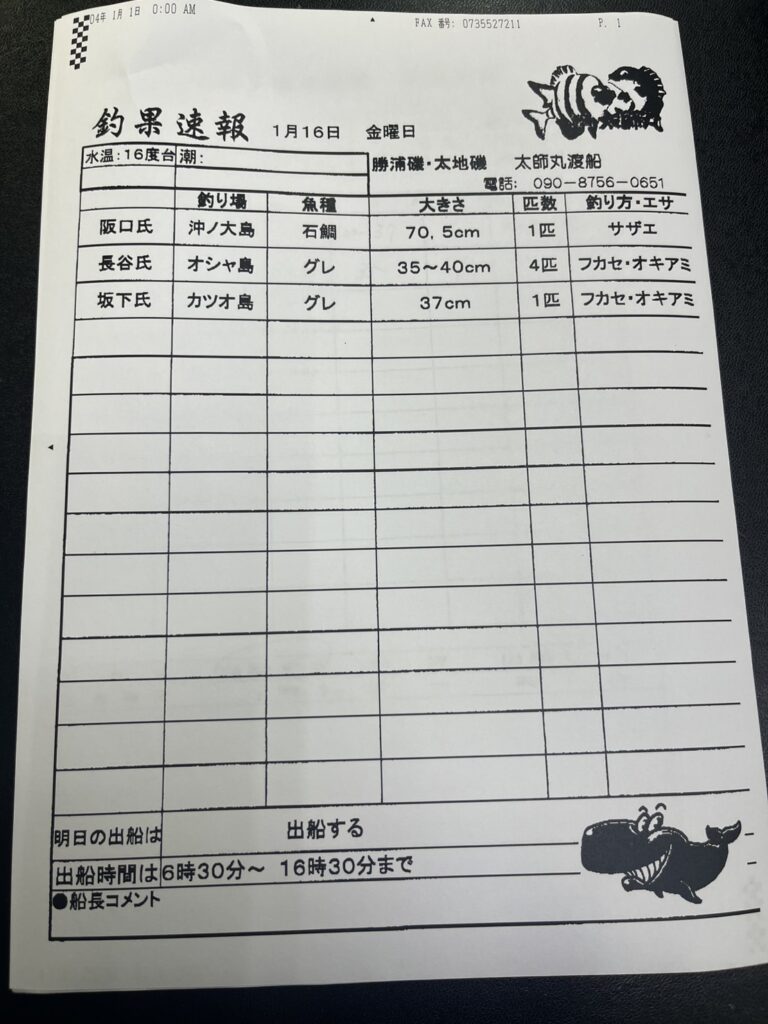 04年 1月 1日 0:00 AM FAX 番号: 0735527211 P. 1
釣果速報 1月16日 金曜日
水温:16度台 潮:
勝浦磯・太地磯 太師丸渡船
電話: 090-8756-0651
釣り場 魚種 大きさ 匹数 釣り方・エサ
阪口氏 沖ノ大島 石鯛 70,5cm 1匹 サザエ
長谷氏 オシャ島 グレ 35～40cm 4匹 フカセ・オキアミ
坂下氏 カツオ島 グレ 37cm 1匹 フカセ・オキアミ
明日の出船は 出船する
出船時間は 6時30分～ 16時30分まで
●船長コメント